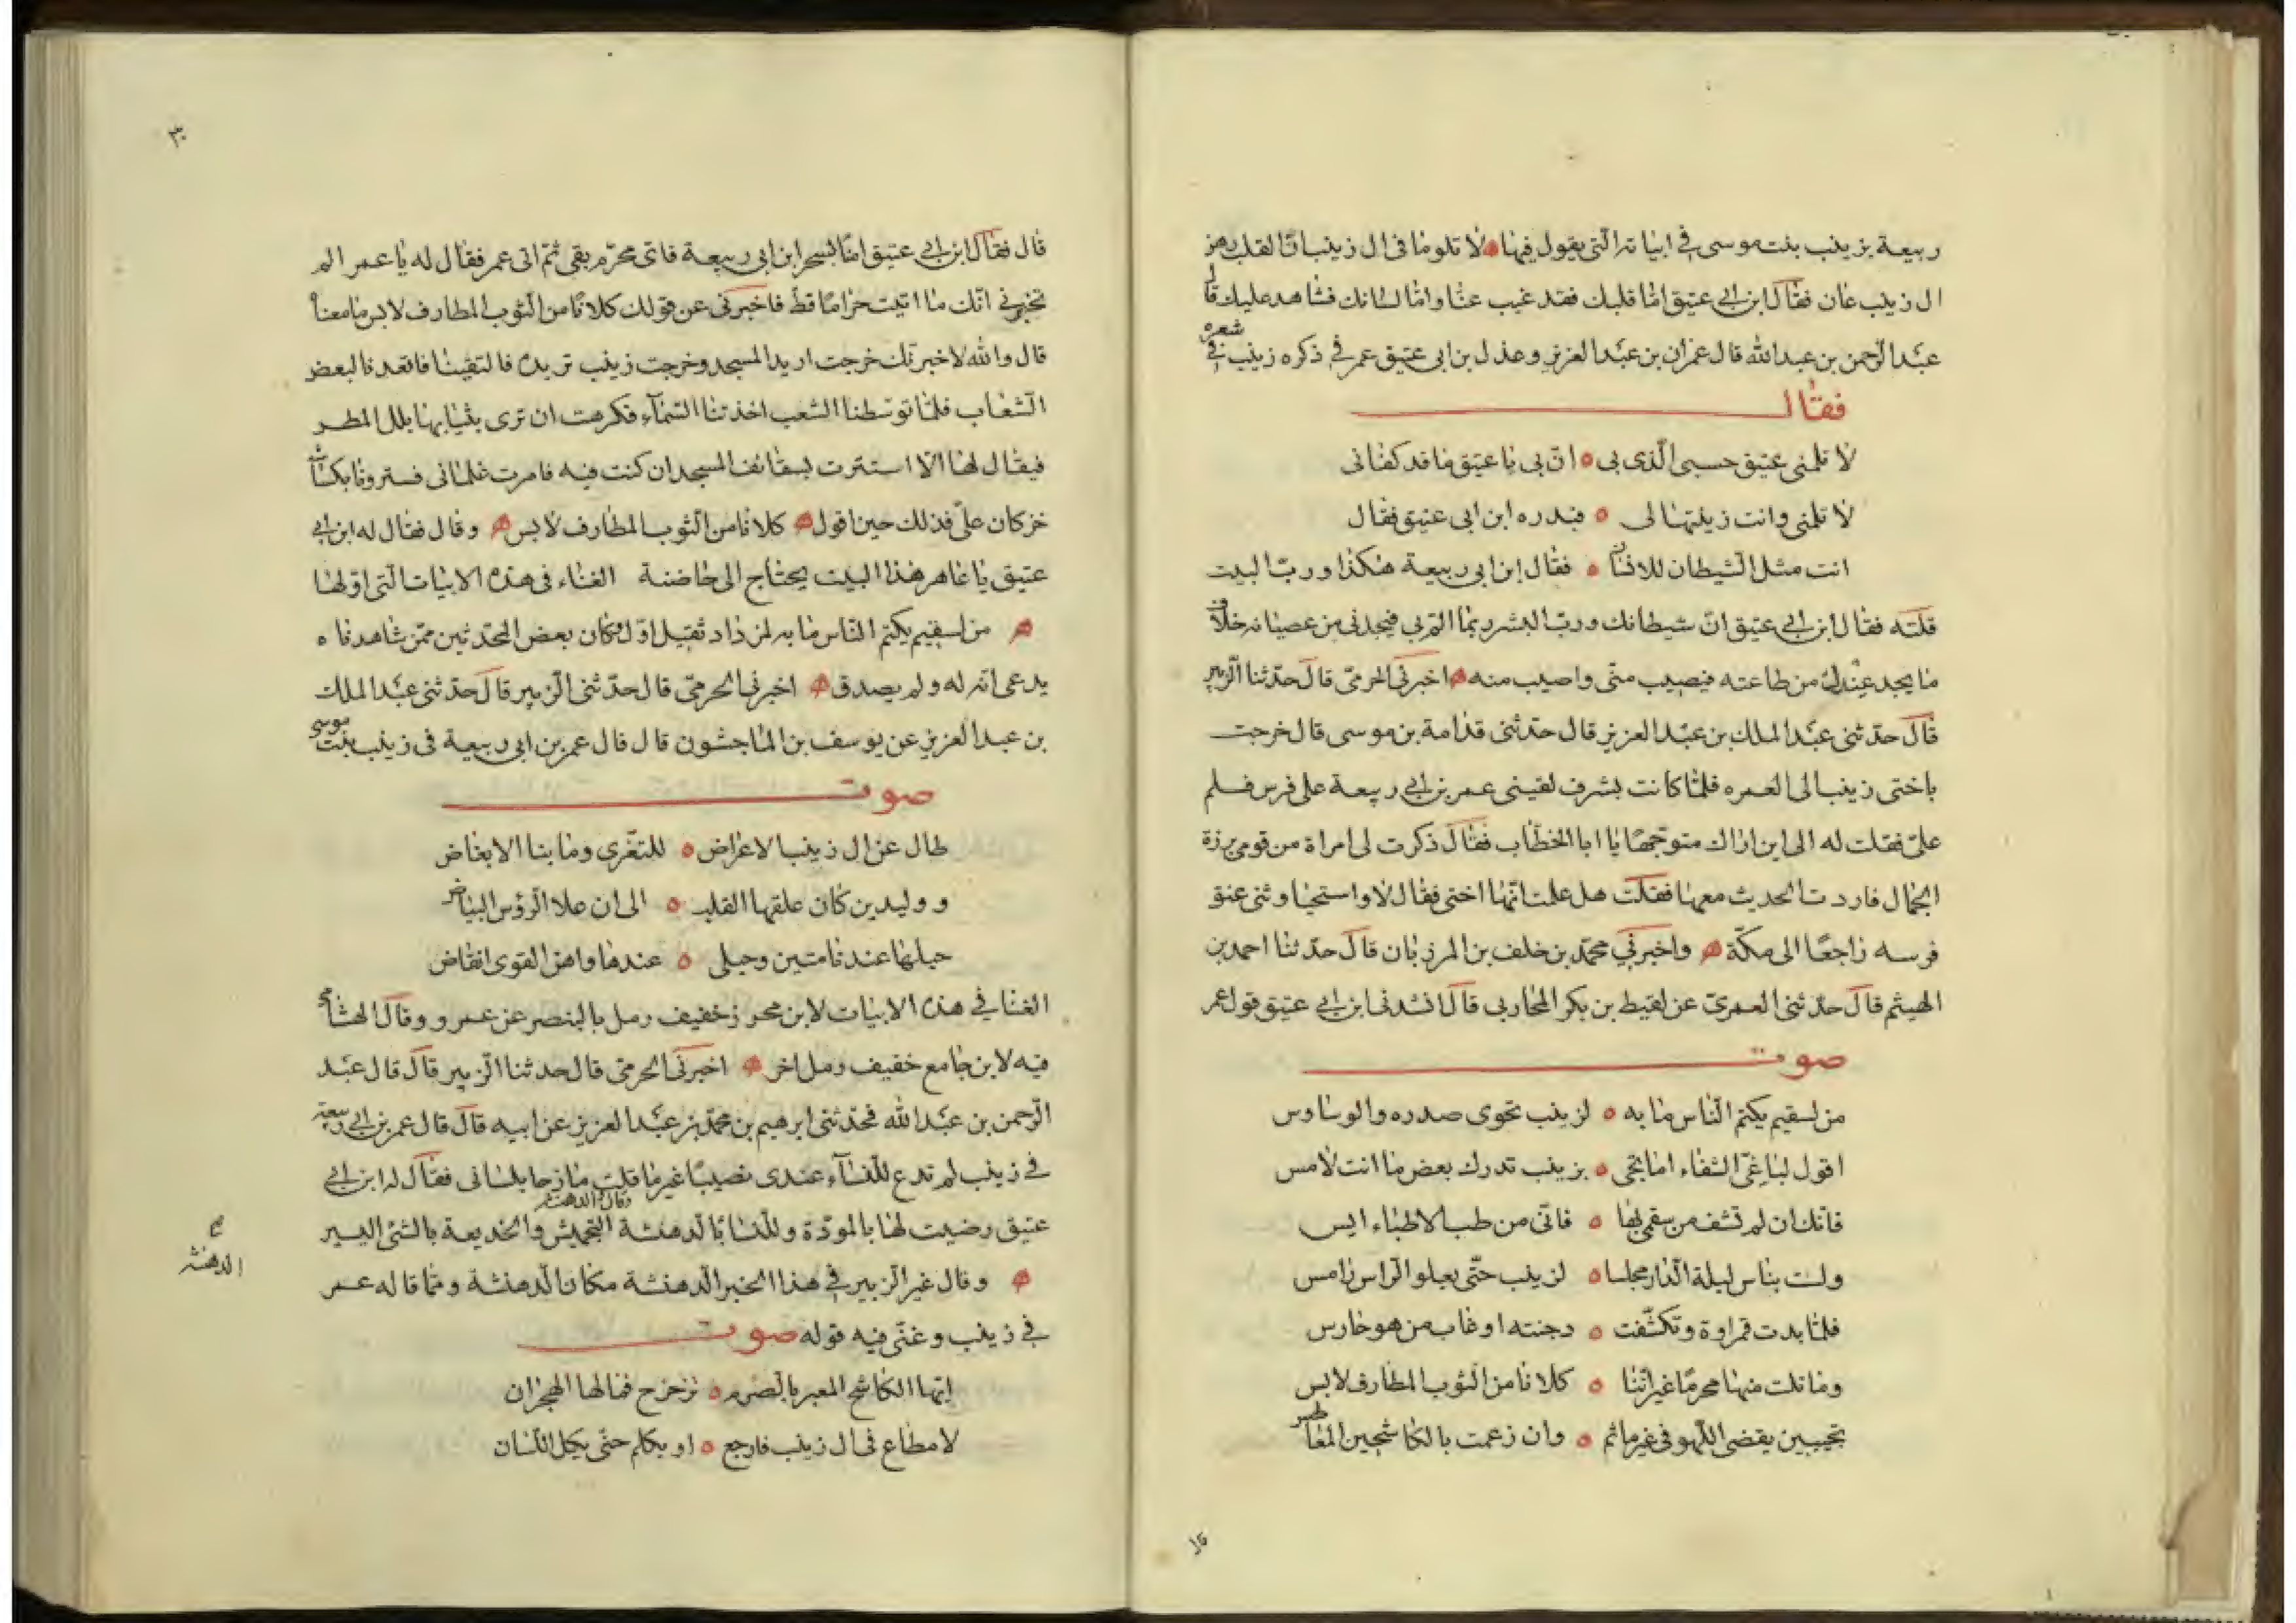 ربيعة بزينب بنت موسى في ابياته التي يقول فيها لا تلوما في ال زينب ان القلب رهن
ال زينب عان فقال ابن ابي عتيق اما قلبك فقد غيب عنا واما لسانك فشاهد عليك قال
عبد الرحمن بن عبد الله قال عمران بن عبد العزيز وعذل بن ابي عتيق عمر في ذكره زينب في شعره
فقال
لا تلمني عتيق حسبي الذي بي ان بي يا عتيق ما قد كفاني
لا تلمني وانت زينتها لي فبدره ابن ابي عتيق فقال
انت مثل الشيطان للانسان فقال ابن ابي ربيعة هكذا ورب البيت
قلته فقال ابن ابي عتيق ان شيطانك ورب البشر ربما الم بي فيجد ني من عصيانه خلاف
ما يجد عندك من طاعته فيصيب مني واصيب منه اخبرني الحرمي قال حدثنا الزبير
قال حدثني عبد الملك بن عبد العزيز قال حدثني قدامة بن موسى قال خرجت
باختي زينب الى العمره فلما كانت بسرف لقيني عمر بن ابي ربيعة على فرس فسلم
علي فقلت له الى اين اراك متوجها يا ابا الخطاب فقال ذكرت لي امراة من قومي برزة
الجمال فاردت الحديث معها فقلت هل علمت انها اختي فقال لا واستحيا وثنى عنق
فرسه راجعا الى مكة واخبرني محمد بن خلف بن المرزبان قال حدثنا احمد بن
الهيثم قال حدثني العمري عن لقيط بن بكر المحاربي قال انشدني ابن ابي عتيق قول عمر
صوت
من لسقيم يكتم الناس ما به لزينب نجوى صدره والوساوس
اقول لباغي الشفاء اما تجى بزينب تدرك بعض ما انت لامس
فانك ان لم تشف من سقمي بها فاني من طب الاطباء ايس
ولست بناس ليلة الدار مجلسا لزينب حتى يعلو الراس رامس
فلما بدت قمراوة وتكشفت دجنته او غاب من هو حارس
وما نلت منها محرما غير اننا كلانا من الثوب المطارف لابس
نجيبين يقضي اللهو في غير ماثم وان زعمت بالكاشحين المعاطس
٣٠
قال فقال ابن ابي عتيق امنا يسخر ابن ابي ربيعة فاى محرم بقى ثم اتى عمر فقال له يا عمر الم
تخبرني انك ما اتيت حراما قط فاخبرني عن قولك كلانا من الثوب المطارف لابس ما معناه
قال والله لاخبرنك خرجت اريد المسجد وخرجت زينب تريده فالتقينا فاتعدنا لبعض
الشعاب فلما توسطنا الشعب اخذتنا السماء فكرهت ان ترى بثيابها بلل المطر
فيقال لها الا استترت بسقائف المسجد ان كنت فيه فامرت غلماني فسترونا بكساء
خز كان علي فذلك حين اقول كلانا من الثوب المطارف لابس وقال فقال له ابن ابي
عتيق يا عاهر هذا البيت يحتاج الى حاضنة الغناء في هذه الابيات التي اولها
من لسقيم يكتم الناس ما به لمرذاد ثقيل اول وكان بعض المحدثين ممن شاهدناه
يدعى انه له ولم يصدق اخبرني الحرمي قال حدثني الزبير قال حدثني عبد الملك
بن عبد العزيز عن يوسف بن الماجشون قال قال عمر بن ابي ربيعة في زينب بنت موسى
صوت
طال عن ال زينب الاعراض للتعزى وما بنا الابغاض
ووليدين كان علقها القلب الى ان علا الرؤس البياض
حبلها عندنا متين وحبلي عندها واهن القوى انقاض
الغنا في هذه الابيات لابن محرز خفيف رمل بالبنصر عن عمرو وقال الهشامي
فيه لابن جامع خفيف رمل اخر اخبرني الحرمي قال حدثنا الزبير قال قال عبد
الرحمن بن عبد الله فحدثني ابرهيم بن محمد بن عبد العزيز عن ابيه قال قال عمر بن ابي ربيعة
في زينب لم تدع للنساء عندى نصيبا غير ما قلت مازحا بلساني فقال له ابن ابي
عتيق رضيت لها بالمودة وللنسا بالدهنشة التجميش والخديعة بالشئ اليسير
وقال غير الزبير في هذا الخبر الدهنشة مكان الدهنثة ومما قاله عمر
الدهنثه
في زينب وغنى فيه قوله صوت
ايها الكاشح المعير بالصرم تزحزح فما لها الهجران
لا مطاع في ال زينب فارجع او تكلم حتى يكل اللسان